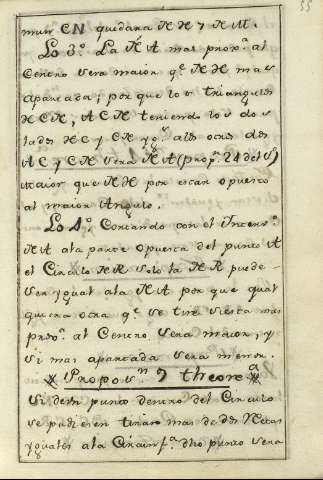 55
mun CN quidana KH y KM.
Lo 3º. La KA mas prox.ª al
Centro sera maior q.e KH mas
apartada; porque los triangulos
HCK, ACK teniendo los dos
lados HC y CK yg.s alos otros dos
AC y CK sera KA (prop.n 24 del
maior que KH por estar opuesto
al maior Angulo.
Lo 4º. Cortando con el Interv.º
KA ala parte opuesta del punto A
el Circulo HR solo la KR puede
ser ygual ala KA por que qual
quiera otra q.e se tire sera mas
prox.ª al Centro sera maior, y
si mas apartada sera menor.
Propos.n 9 theore.ª
Si de un punto dentro del Circulo
se pudiesen tirar mas de dos Rectas
yguales ala Circunf.ª dho punto sera